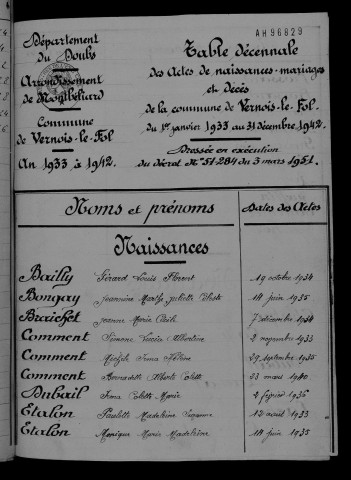 AH96829
Département
du Doubs
Arrondissement
de Montbéliard
Commune
de Vernois-le-Fol
An 1933 à 1942.
Table décennale
des Actes de naissances-mariages
et décès
de la commune de Vernois-le-Fol.
du 1er janvier 1933 au 31 décembre 1942.
Dressée en exécution
du décret N° 51-284 du 3 mars 1951.
Noms et prénoms Dates des Actes
Naissances
Bailly Gérard Louis Florent 19 octobre 1934
Bongay Jeannine Marthe Juliette 14 juin 1935
Jeanne Marie 7 décembre 1934
Comment Simone Lucie Albertine 2 novembre 1933
Comment Michel 29 septembre 1935
Comment Bernadette Alberte Colette 23 mars 1940
Dubail Colette Marie février 1936
Etalon Paulette Madeleine Suzanne 12 août 1933
Etalon Monique Marie Madeleine 14 juin 1935